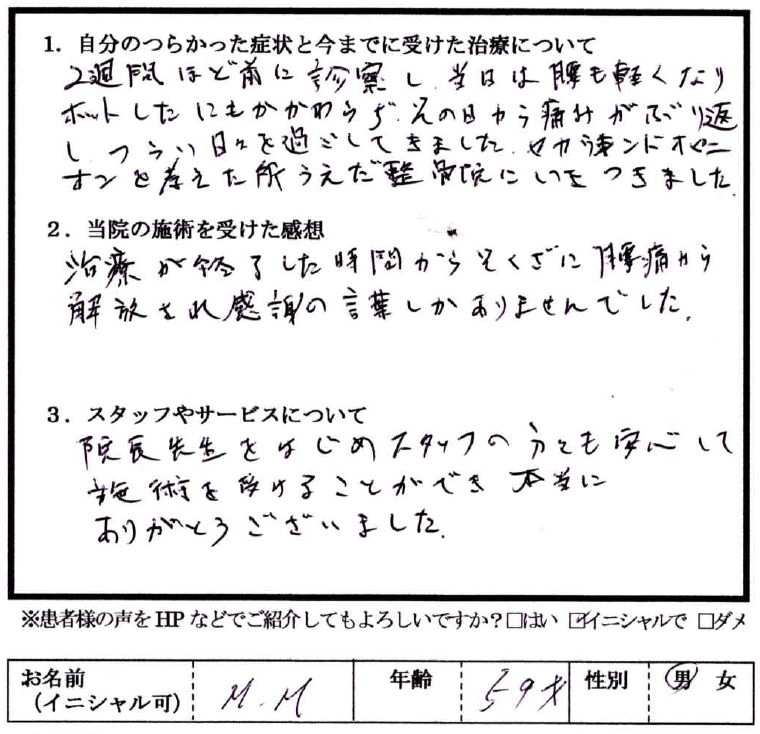 1. 自分のつらかった症状と今までに受けた治療について
2週間ほど前に診察し、当日は腰も軽くなり
ホットしたにもかかわらず、その日から痛みがぶり返
し、つらい日々を過ごしてきました。セカンドオピニ
オンを考えた所うえだ整骨院にいきつきました。
2. 当院の施術を受けた感想
治療が終了した時間からそくざに腰痛から
解放され感謝の言葉しかありませんでした。
3. スタッフやサービスについて
院長先生をはじめスタッフの方々も安心して
施術を受けることができ本当に
ありがとうございました。
※患者様の声をHPなどでご紹介してもよろしいですか？□はい ☑イニシャルで □ダメ
お名前 M.M 年齢 59才 性別 男 女
(イニシャル可)